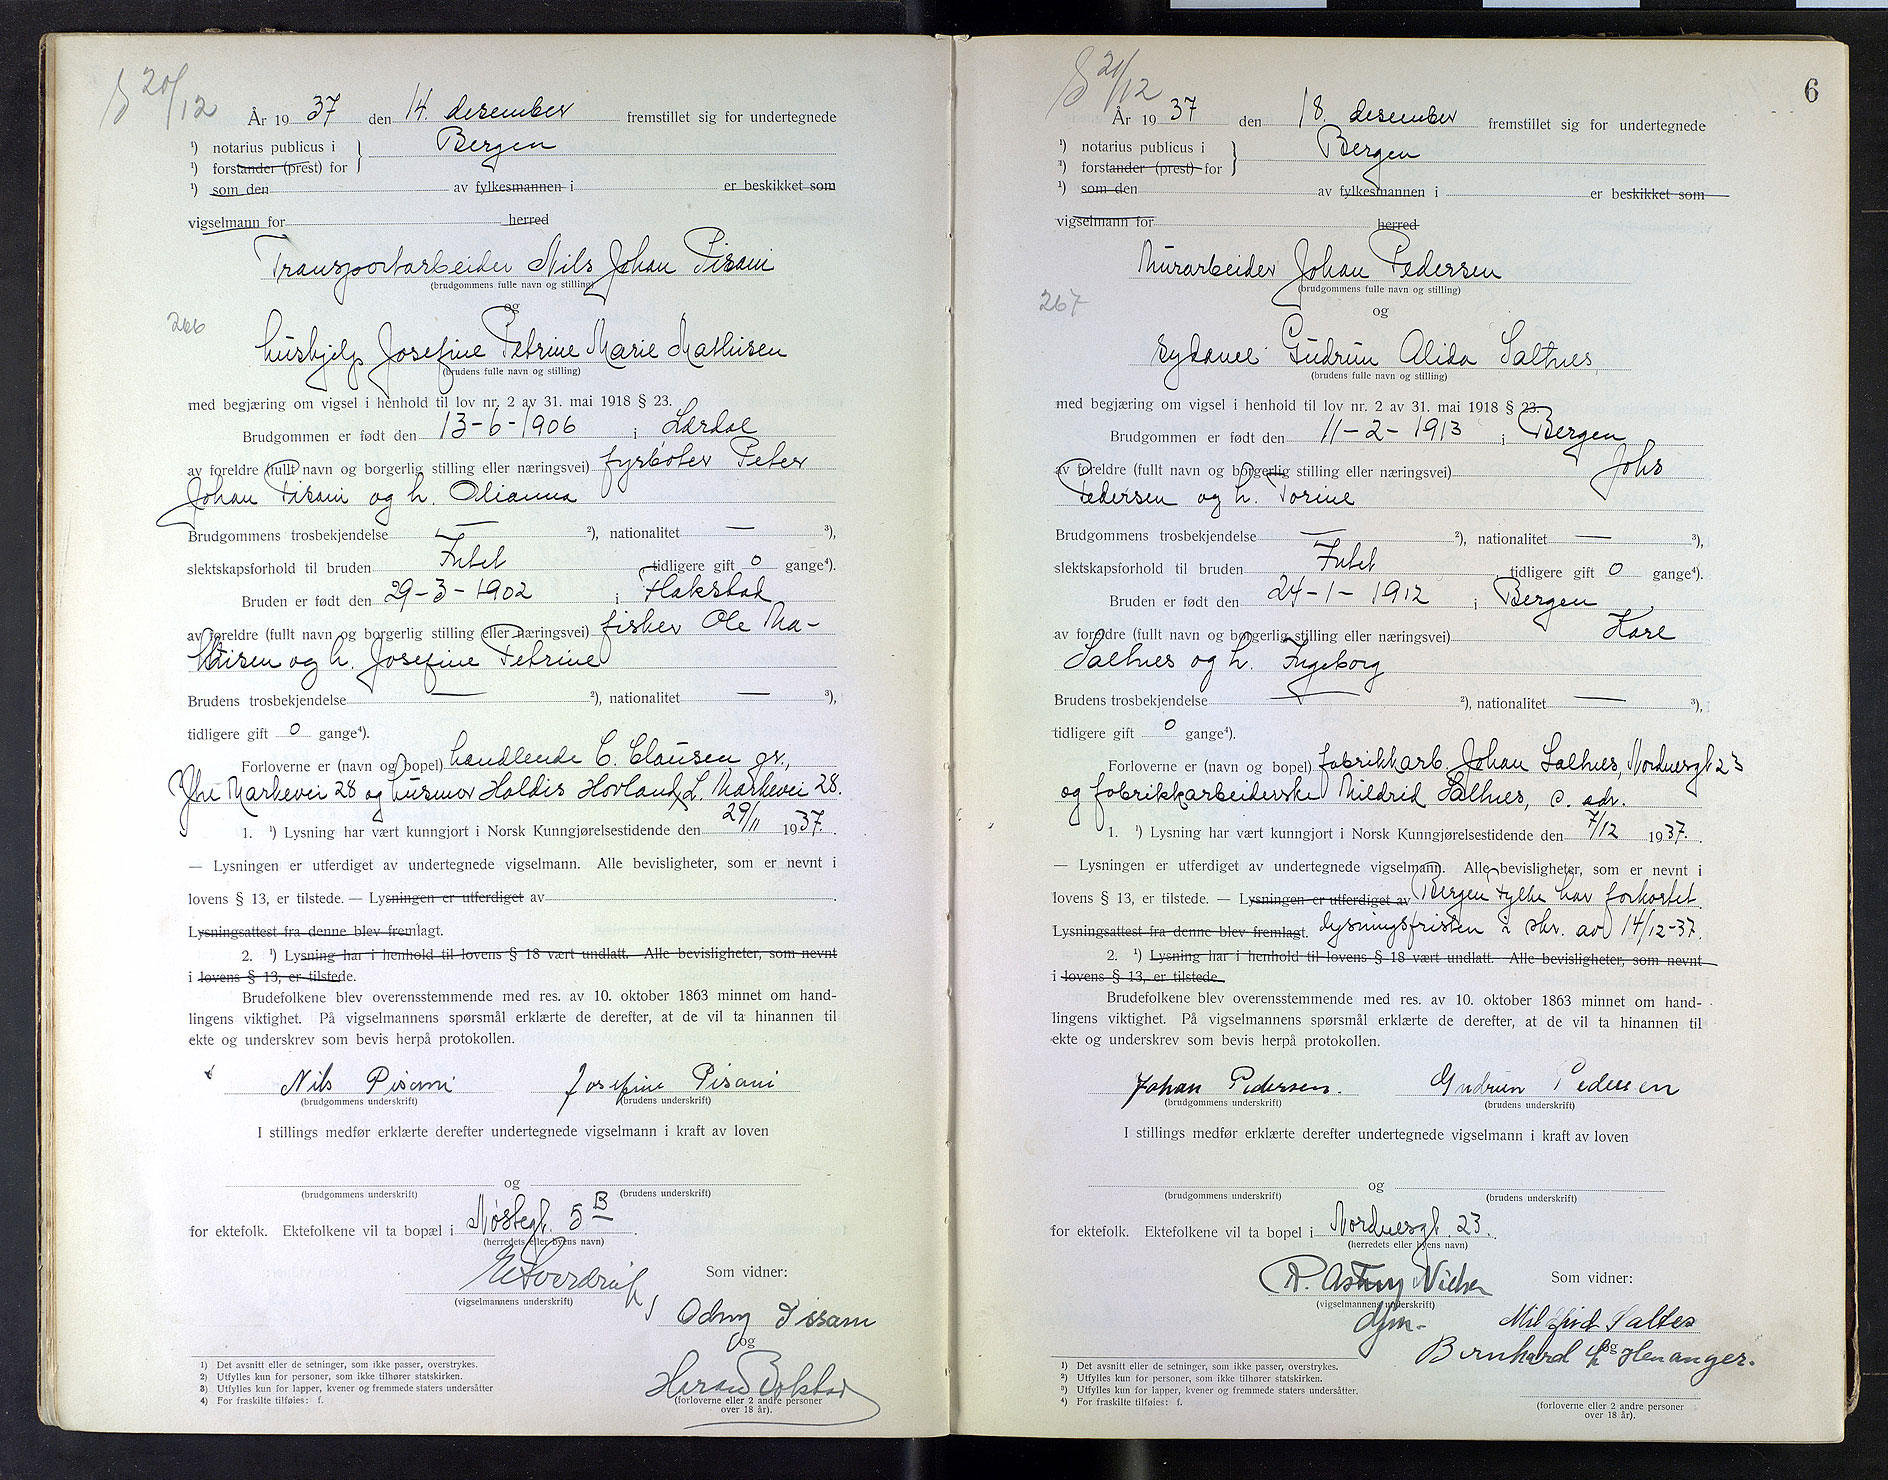 20/12
År 1937 den 14. desember fremstillet sig for undertegnede
¹) notarius publicus i } Bergen
¹) forstander (prest) for
¹) som den av fylkesmannen i er beskikket som
vigselmann for herred
Transportarbeider Nils Johan Pisani
(brudgommens fulle navn og stilling)
og
266
hushjelp Josefine Petrine Marie Mathisen
(brudens fulle navn og stilling)
med begjæring om vigsel i henhold til lov nr. 2 av 31. mai 1918 § 23.
Brudgommen er født den 13-6-1906 i Lærdal
av foreldre (fullt navn og borgerlig stilling eller næringsvei) fyrbøter Peter
Johan Pisani og h. Olianna
Brudgommens trosbekjendelse — ²), nationalitet — ³),
slektskapsforhold til bruden Intet tidligere gift 0 gange⁴).
Bruden er født den 29-3-1902 i Flakstad
av foreldre (fullt navn og borgerlig stilling eller næringsvei) fisker Ole Ma-
thisen og h. Josefine Petrine
Brudens trosbekjendelse — ²), nationalitet — ³),
tidligere gift 0 gange⁴).
Forloverne er (navn og bopel) handlende C. Clausen gr.,
Markevei 28 og husmor Haldis Hovland, L. Markevei 28.
1. ¹) Lysning har vært kunngjort i Norsk Kunngjørelsestidende den 29/11 1937.
— Lysningen er utferdiget av undertegnede vigselmann. Alle bevisligheter, som er nevnt i
lovens § 13, er tilstede. — Lysningen er utferdiget av
Lysningsattest fra denne blev fremlagt.
2. ¹) Lysning har i henhold til lovens § 18 vært undlatt. Alle bevisligheter, som nevnt
i lovens § 13, er tilstede.
Brudefolkene blev overensstemmende med res. av 10. oktober 1863 minnet om hand-
lingens viktighet. På vigselmannens spørsmål erklærte de derefter, at de vil ta hinannen til
ekte og underskrev som bevis herpå protokollen.
Nils Pisani Josefine Pisani
(brudgommens underskrift) (brudens underskrift)
I stillings medfør erklærte derefter undertegnede vigselmann i kraft av loven
og
(brudgommens underskrift) (brudens underskrift)
for ektefolk. Ektefolkene vil ta bopæl i Nøstegt. 5 B
(herredets eller byens navn)
Som vidner:
(vigselmannens underskrift)
Odny Pissani
og
(forloverne eller 2 andre personer
over 18 år).
1) Det avsnitt eller de setninger, som ikke passer, overstrykes.
2) Utfylles kun for personer, som ikke tilhører statskirken.
3) Utfylles kun for lapper, kvener og fremmede staters undersåtter
4) For fraskilte tilføies: f.
21/12
6
År 1937 den 18. desember fremstillet sig for undertegnede
¹) notarius publicus i } Bergen
¹) forstander (prest) for
¹) som den av fylkesmannen i er beskikket som
vigselmann for herred
Murarbeider Johan Pedersen
(brudgommens fulle navn og stilling)
267
og
sydame Gudrun Alida Saltnes
(brudens fulle navn og stilling)
med begjæring om vigsel i henhold til lov nr. 2 av 31. mai 1918 § 23.
Brudgommen er født den 11-2-1913 i Bergen
av foreldre (fullt navn og borgerlig stilling eller næringsvei) Johs
Pedersen og h. Torine
Brudgommens trosbekjendelse — ²), nationalitet — ³),
slektskapsforhold til bruden Intet tidligere gift 0 gange⁴).
Bruden er født den 24-1-1912 i Bergen
av foreldre (fullt navn og borgerlig stilling eller næringsvei) Karl
Saltnes og h. Ingeborg
Brudens trosbekjendelse — ²), nationalitet — ³),
tidligere gift 0 gange⁴).
Forloverne er (navn og bopel) fabrikkarb. Johan Saltnes, Nordnesgt 23
og fabrikkarbeiderske Mildrid Saltnes, s. adr.
1. ¹) Lysning har vært kunngjort i Norsk Kunngjørelsestidende den 7/12 1937.
— Lysningen er utferdiget av undertegnede vigselmann. Alle bevisligheter, som er nevnt i
lovens § 13, er tilstede. — Lysningen er utferdiget av Bergen Fylke har forkortet
Lysningsattest fra denne blev fremlagt. lysningsfristen i skr. av 14/12-37.
2. ¹) Lysning har i henhold til lovens § 18 vært undlatt. Alle bevisligheter, som nevnt
i lovens § 13, er tilstede.
Brudefolkene blev overensstemmende med res. av 10. oktober 1863 minnet om hand-
lingens viktighet. På vigselmannens spørsmål erklærte de derefter, at de vil ta hinannen til
ekte og underskrev som bevis herpå protokollen.
Johan Pedersen. Gudrun Pedersen
(brudgommens underskrift) (brudens underskrift)
I stillings medfør erklærte derefter undertegnede vigselmann i kraft av loven
og
(brudgommens underskrift) (brudens underskrift)
for ektefolk. Ektefolkene vil ta bopel i Nordnesgt. 23.
(herredets eller byens navn)
Som vidner:
(vigselmannens underskrift)
Saltes
og
Bernhard Henanger.
(forloverne eller 2 andre personer
over 18 år).
1) Det avsnitt eller de setninger, som ikke passer, overstrykes.
2) Utfylles kun for personer, som ikke tilhører statskirken.
3) Utfylles kun for lapper, kvener og fremmede staters undersåtter.
4) For fraskilte tilføies: f.